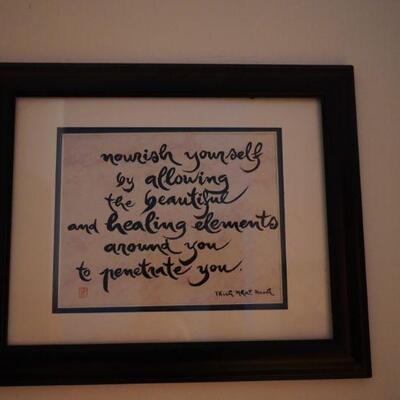 nourish yourself
by allowing
the beautiful
and healing elements
around you
to penetrate you.
Thich Nhat Hanh